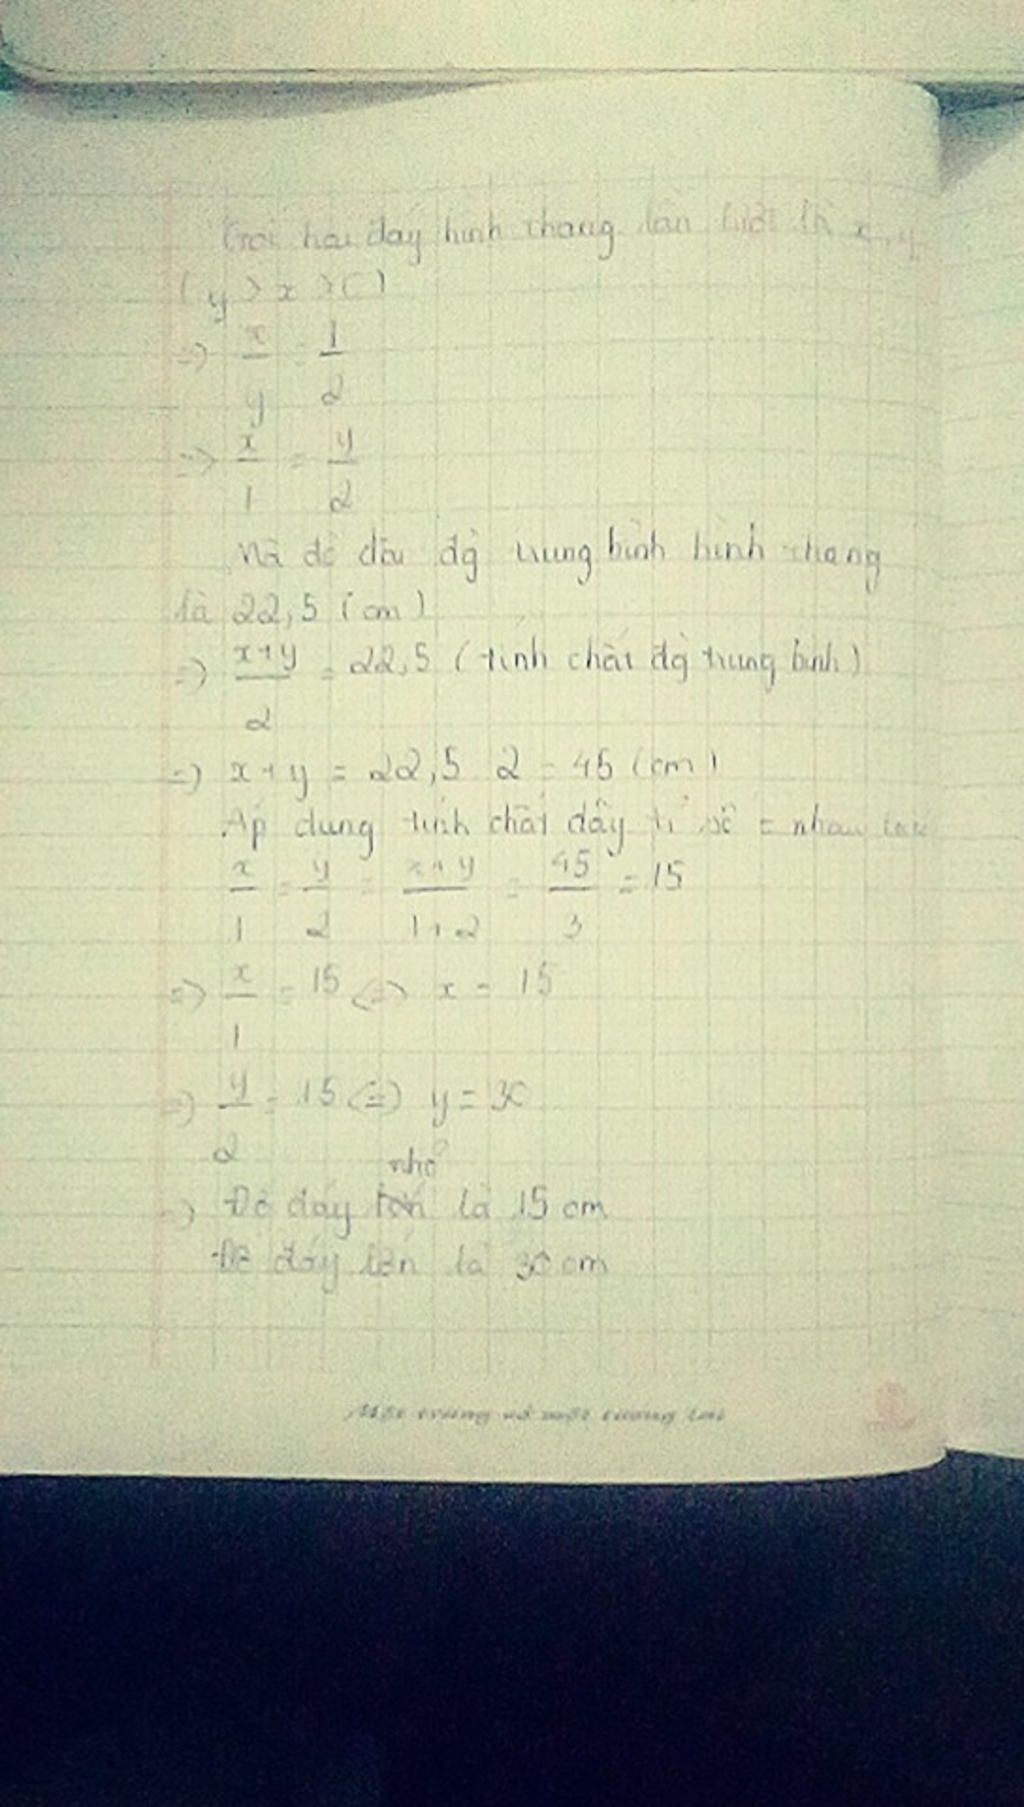 Gọi hai đáy hình thang lần lượt là x, y
(y > x > 0)
=> x/y = 1/2
=> x/1 = y/2
Mà độ dài đg trung bình hình thang
là 22,5 (cm)
=> x+y/2 = 22,5 (tính chất đg trung bình)
=> x+y = 22,5 . 2 = 45 (cm)
Áp dụng tính chất dãy tỉ số = nhau
x/1 = y/2 = x+y/1+2 = 45/3 = 15
=> x/1 = 15 <=> x = 15
=> y/2 = 15 <=> y = 30
=> Độ đáy nhỏ là 15 cm
Độ đáy lớn là 30 cm